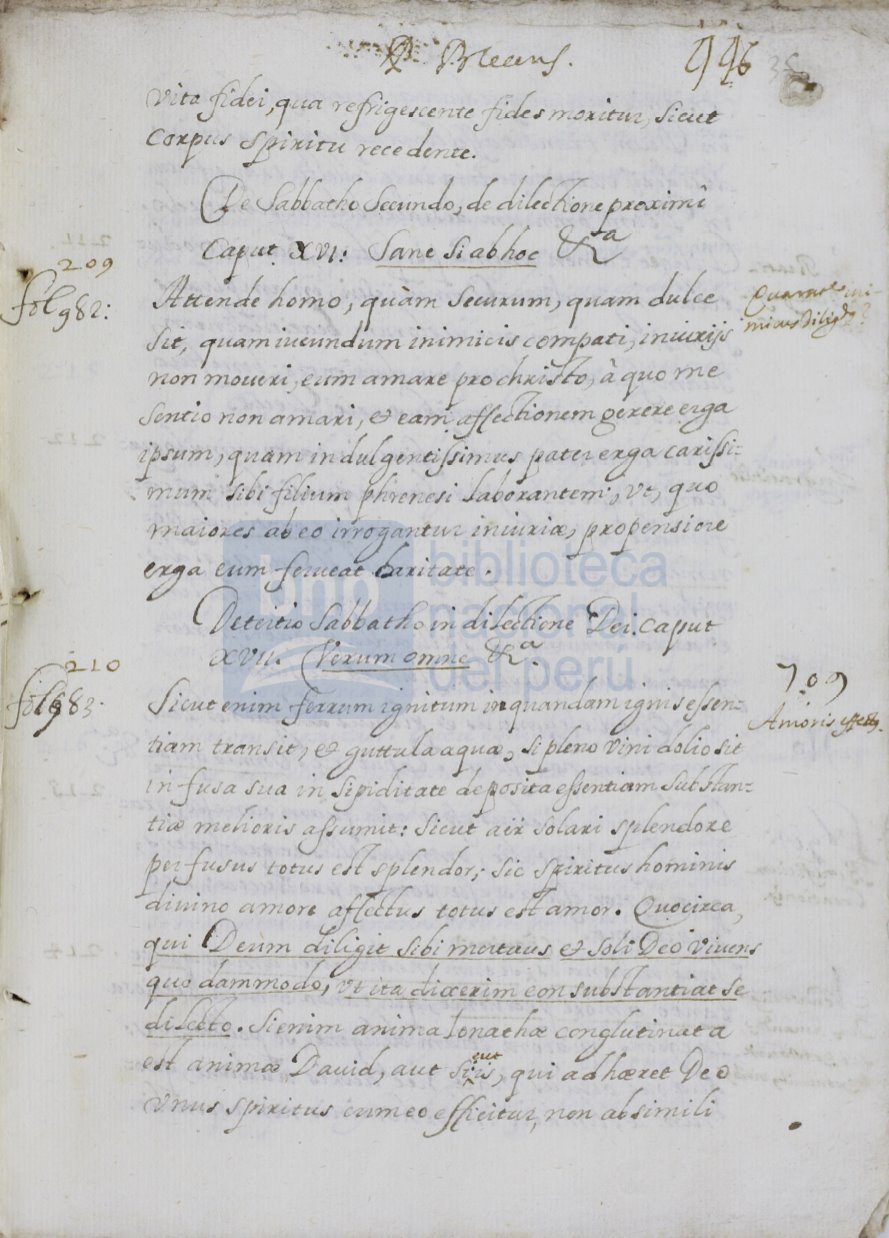 P Blecens.
446
35
vita fidei, qua refrigescente fides moritur, sicut
corpus spiritu recedente.
De Sabbatho secundo, de dilectione proximi
Caput XVI: Sane si ab hoc &ª
209
fol 982:
Attende homo, quàm securum, quam dulce
sit, quam iucundum inimicis compati, iniurijs
non moueri, eum amare pro christo, à quo me
sentio non amari, et eam affectionem gerere erga
ipsum, quam indulgentissimus pater erga carissi-
mum sibi filium phrenesi laborantem, vt, quo
maiores ab eo irrogantur iniuriæ, propensiore
erga eum ferueat charitate.
De tertio Sabbatho in dilectione Dei. Caput
XVII. Verum omne &ª
210
fol 983.
709
Amoris effectus.
Sicut enim ferrum ignitum in quandam ignis essen-
tiam transit, et guttula aquæ, si pleno vini dolio sit
infusa sua insipiditate deposita essentiam substan-
tiæ melioris assumit: sicut aër solari splendore
perfusus totus est splendor, sic spiritus hominis
diuino amore affectus totus est amor. Quocirca,
qui Deum diligit sibi mortuus et soli Deo viuens
quodammodo, vt ita dixerim consubstantiat se
dilecto. Si enim anima Ionathæ conglutinata
est animæ Dauid, aut sicut is, qui adhæret Deo
vnus spiritus cum eo efficitur, non absimili
biblioteca
nacional
del perú
bnp